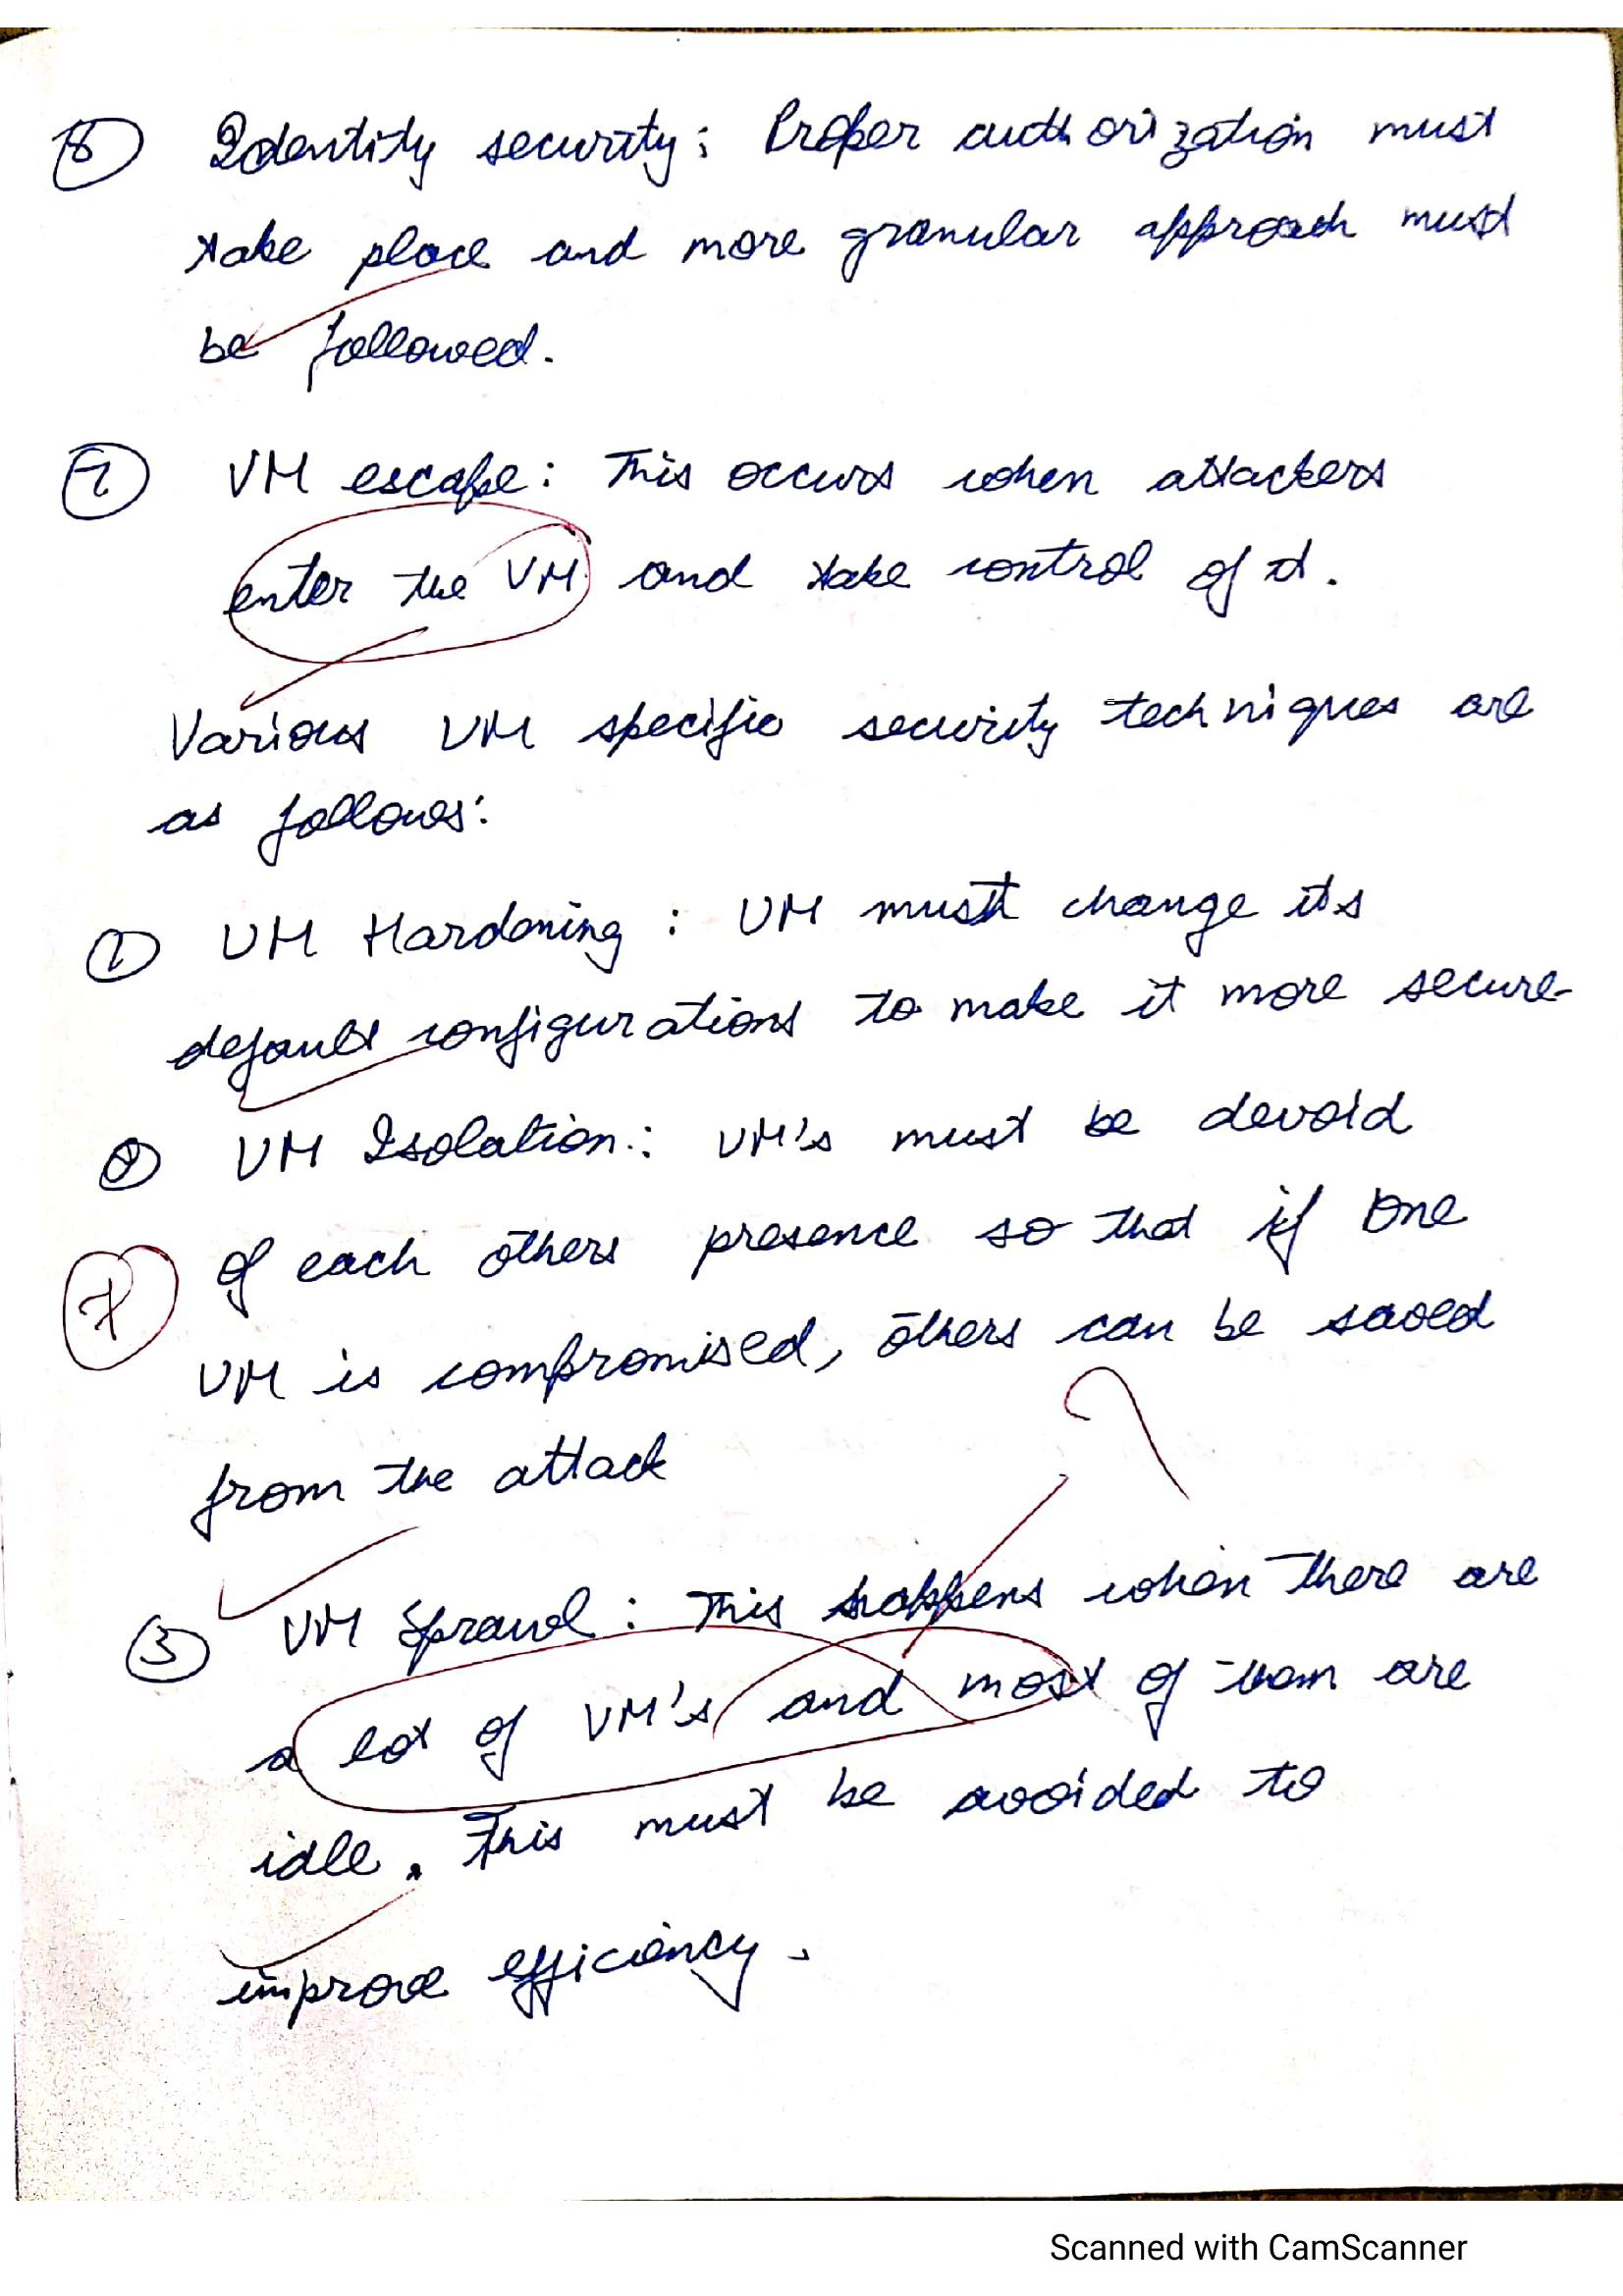 ⑧ Identity security: Proper authorization must
take place and more granular approach must
be followed.
⑦ VM escape: This occurs when attackers
enter the VM and take control of it.
Various VM specific security techniques are
as follows:
① VM Hardening : VM must change its
default configurations to make it more secure
② VM Isolation: VM's must be devoid
of each others presence so that if one
7
VM is compromised, others can be saved
from the attack
?
③ VM Sprawl : This happens when there are
a lot of VM's and most of them are
idle. This must be avoided to
improve efficiency.
Scanned with CamScanner